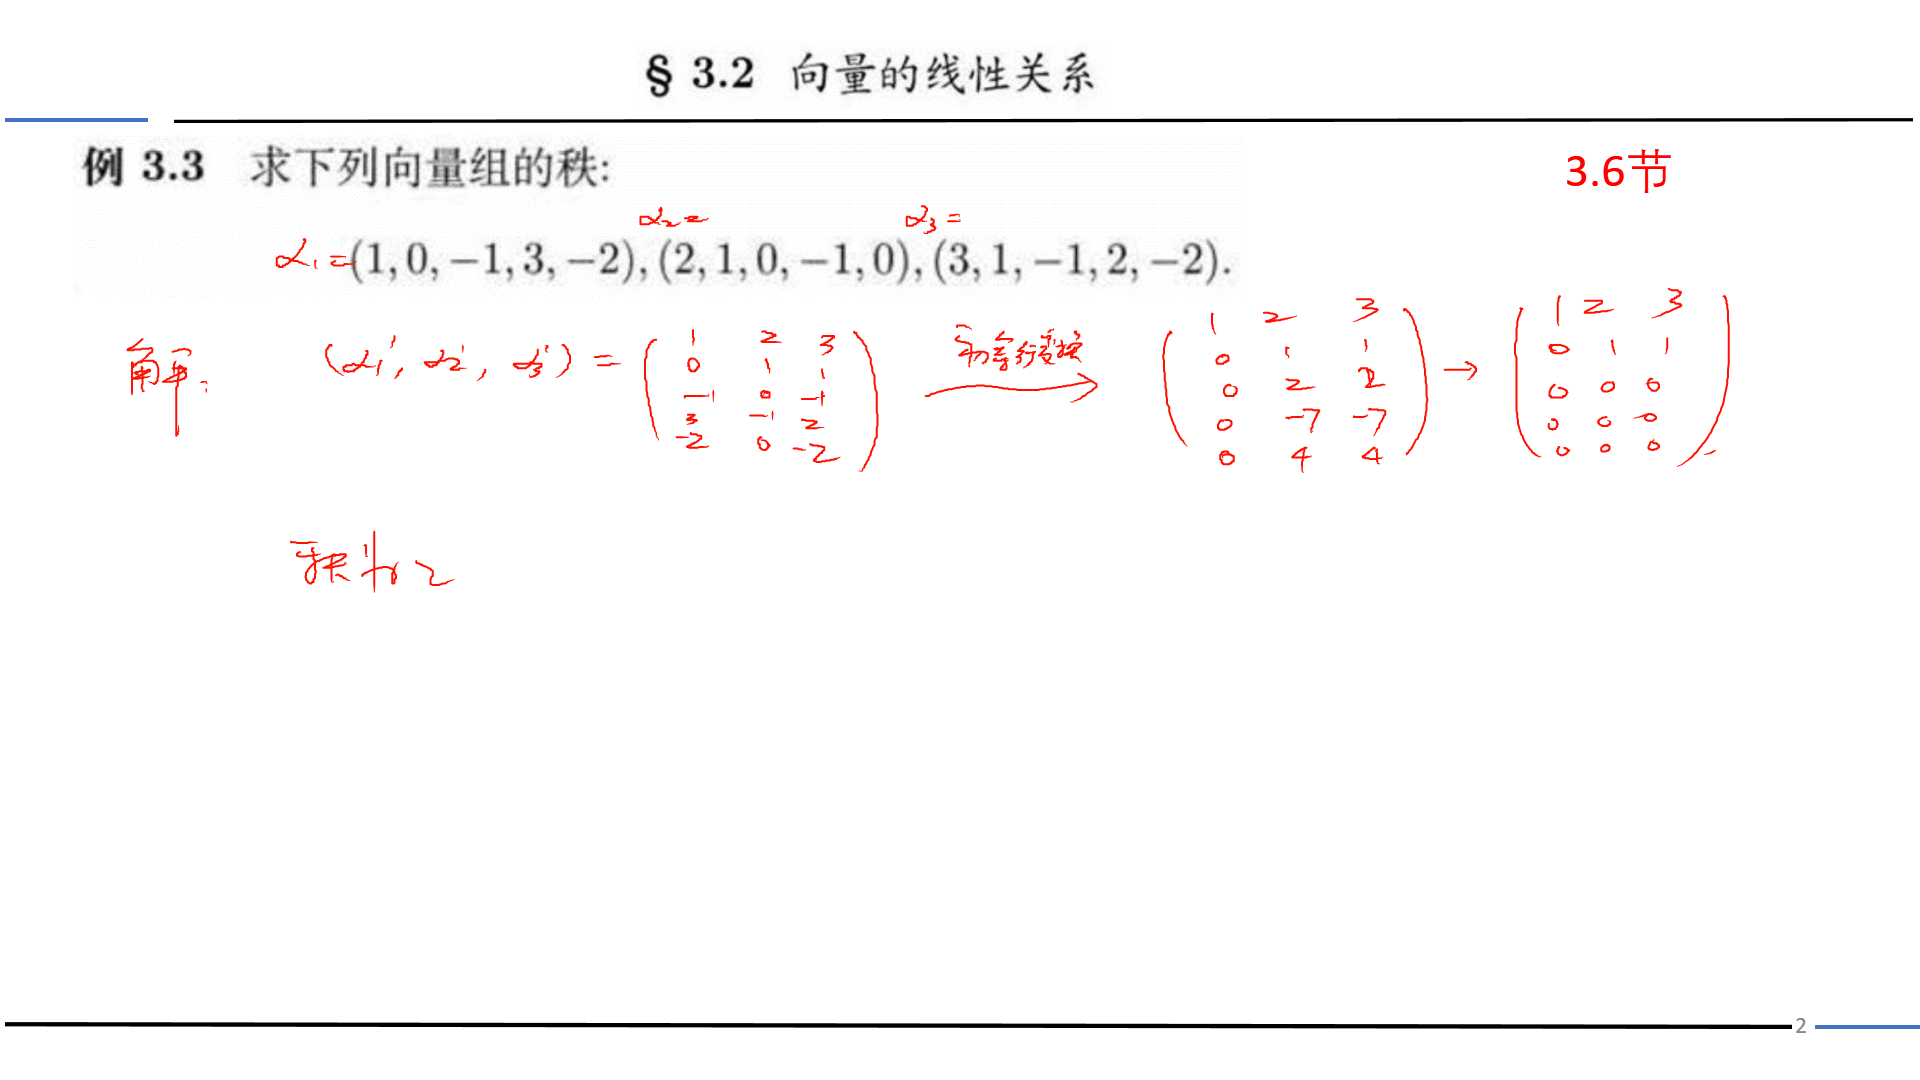 § 3.2 向量的线性关系
例 3.3 求下列向量组的秩:
3.6节
α₂= α₃=
α₁=(1, 0, −1, 3, −2), (2, 1, 0, −1, 0), (3, 1, −1, 2, −2).
解: (α₁′, α₂′, α₃′) = 初等行变换 →
1 2 3
0 1 1
-1 0 -1
3 -1 2
-2 0 -2
1 2 3
0 1 1
0 2 2
0 -7 -7
0 4 4
→
1 2 3
0 1 1
0 0 0
0 0 0
0 0 0
秩为2
2